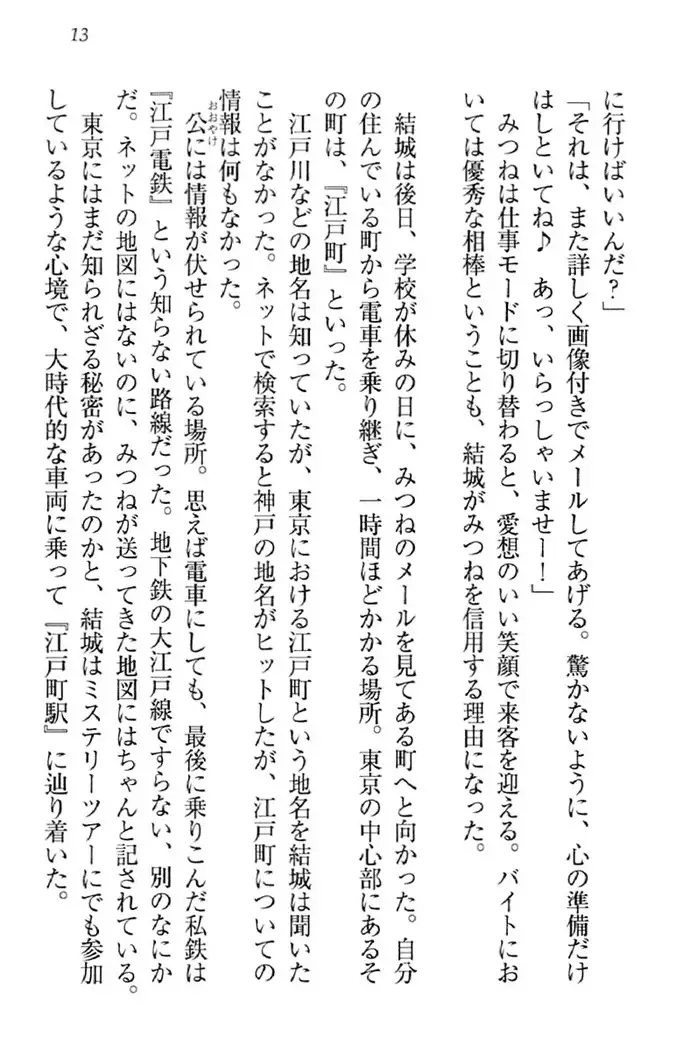 13
に行けばいいんだ？」
「それは、また詳しく画像付きでメールしてあげる。驚かないように、心の準備だけ
はしといてね♪　あっ、いらっしゃいませー！」
　みつねは仕事モードに切り替わると、愛想のいい笑顔で来客を迎える。バイトにお
いては優秀な相棒ということも、結城がみつねを信用する理由になった。
　結城は後日、学校が休みの日に、みつねのメールを見てある町へと向かった。自分
の住んでいる町から電車を乗り継ぎ、一時間ほどかかる場所。東京の中心部にあるそ
の町は、『江戸町』といった。
　江戸川などの地名は知っていたが、東京における江戸町という地名を結城は聞いた
ことがなかった。ネットで検索すると神戸の地名がヒットしたが、江戸町についての
情報は何もなかった。
　公おおやけには情報が伏せられている場所。思えば電車にしても、最後に乗りこんだ私鉄は
『江戸電鉄』という知らない路線だった。地下鉄の大江戸線ですらない、別のなにか
だ。ネットの地図にはないのに、みつねが送ってきた地図にはちゃんと記されている。
　東京にはまだ知られざる秘密があったのかと、結城はミステリーツアーにでも参加
しているような心境で、大時代的な車両に乗って『江戸町駅』に辿り着いた。